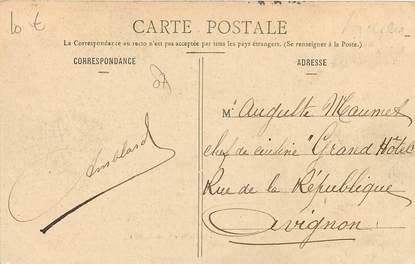 10 €
CARTE POSTALE
La Correspondance au recto n'est pas acceptée par tous les pays étrangers. (Se renseigner à la Poste.)
CORRESPONDANCE
ADRESSE
M. Auguste Maumet
chef de cuisine "Grand Hôtel"
Rue de la République
Avignon
Amblard